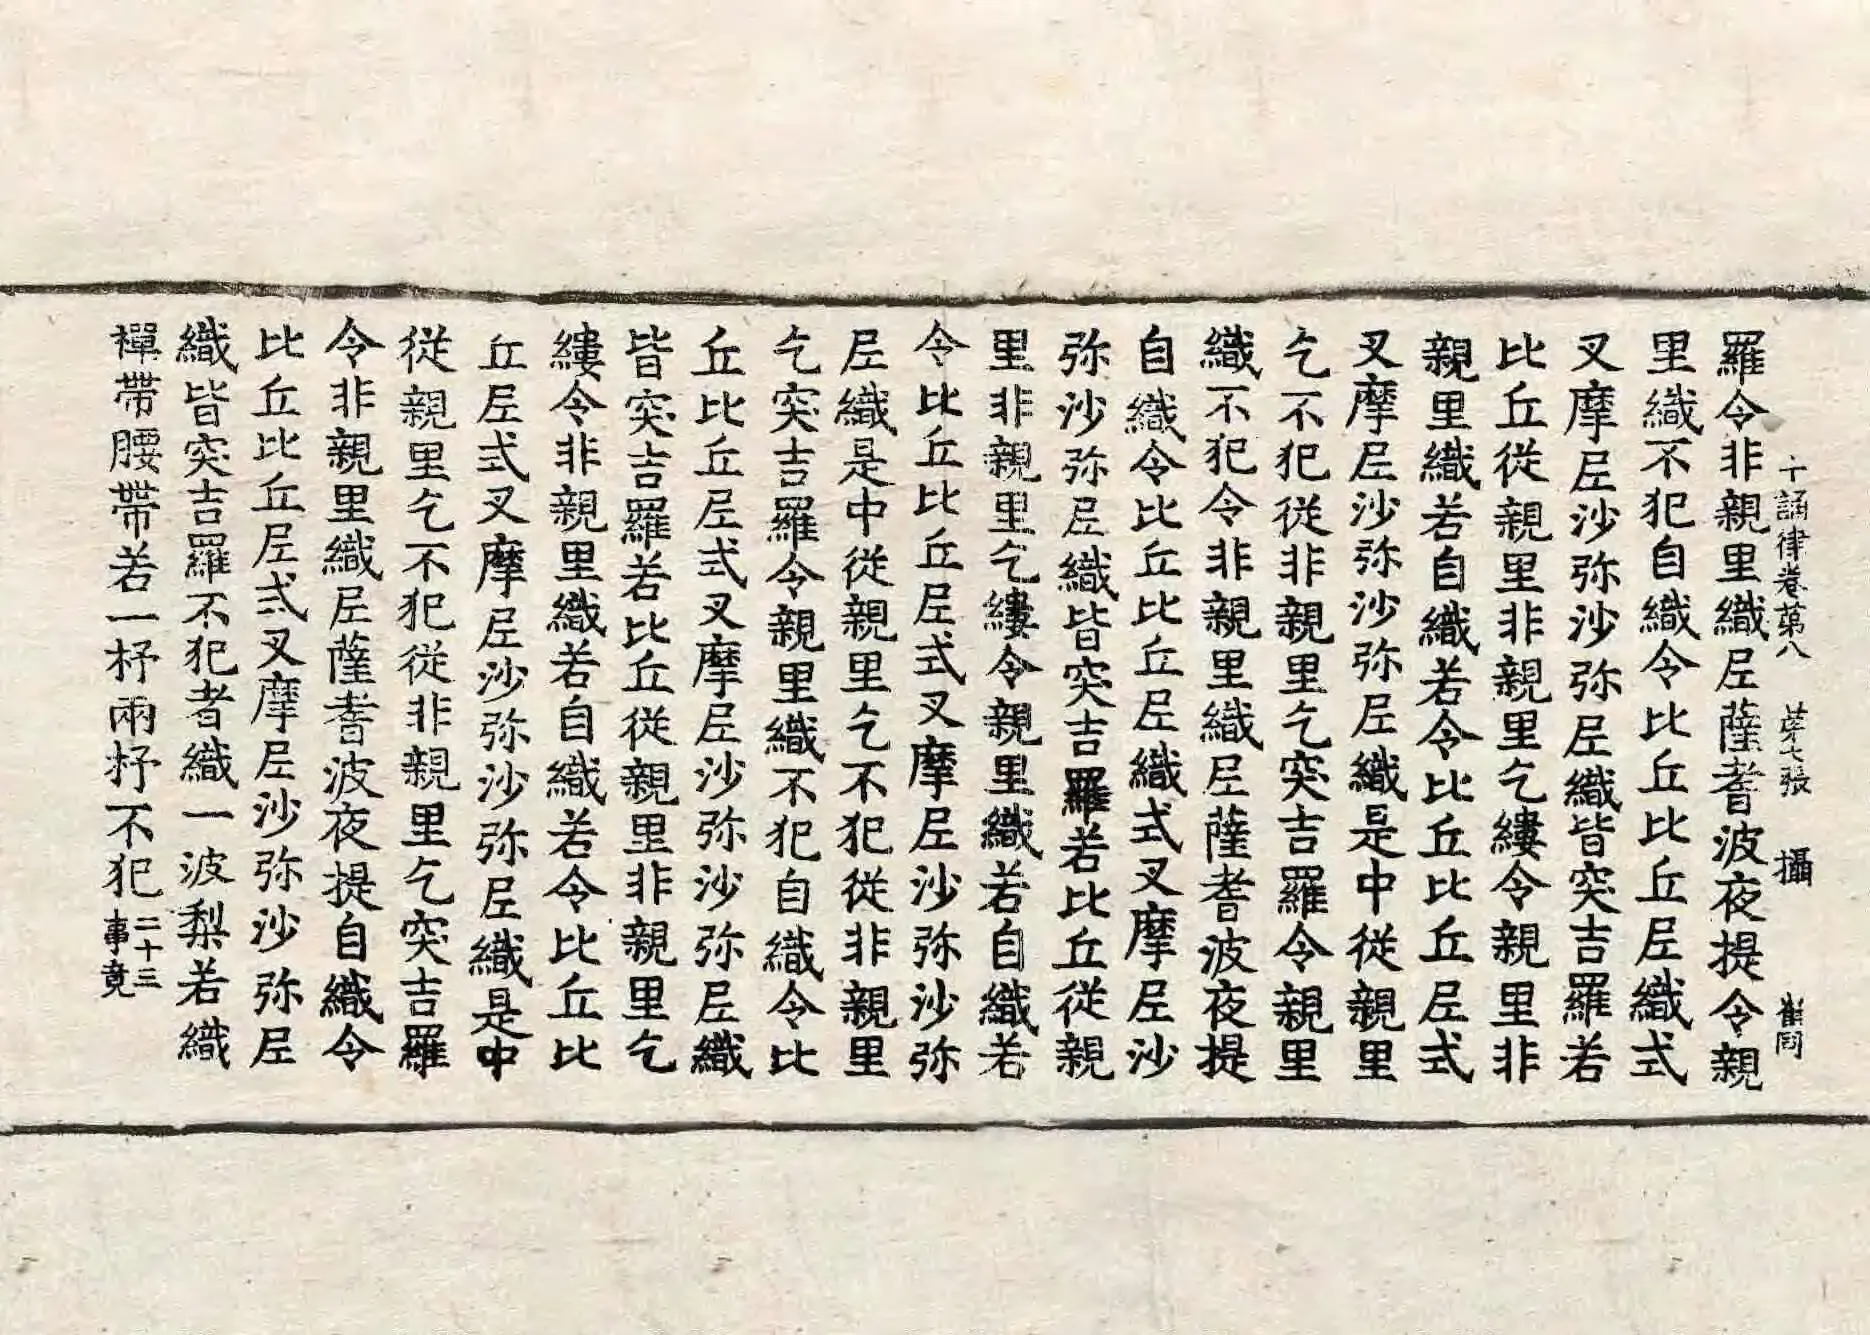 十誦律卷第八 第七張 攝 崔同
羅令非親里織尼薩耆波夜提令親
里織不犯自織令比丘比丘尼織式
叉摩尼沙弥沙弥尼織皆突吉羅若
比丘從親里非親里乞縷令親里非
親里織若自織若令比丘比丘尼式
叉摩尼沙弥沙弥尼織是中從親里
乞不犯從非親里乞突吉羅令親里
織不犯令非親里織尼薩耆波夜提
自織令比丘比丘尼織式叉摩尼沙
弥沙弥尼織皆突吉羅若比丘從親
里非親里乞縷令親里織若自織若
令比丘比丘尼式叉摩尼沙弥沙弥
尼織是中從親里乞不犯從非親里
乞突吉羅令親里織不犯自織令比
丘比丘尼式叉摩尼沙弥沙弥尼織
皆突吉羅若比丘從親里非親里乞
縷令非親里織若自織若令比丘比
丘尼式叉摩尼沙弥沙弥尼織是中
從親里乞不犯從非親里乞突吉羅
令非親里織尼薩耆波夜提自織令
比丘比丘尼式叉摩尼沙弥沙弥尼
織皆突吉羅不犯者織一波梨若織
禪帶腰帶若一杼兩杼不犯二十三事竟